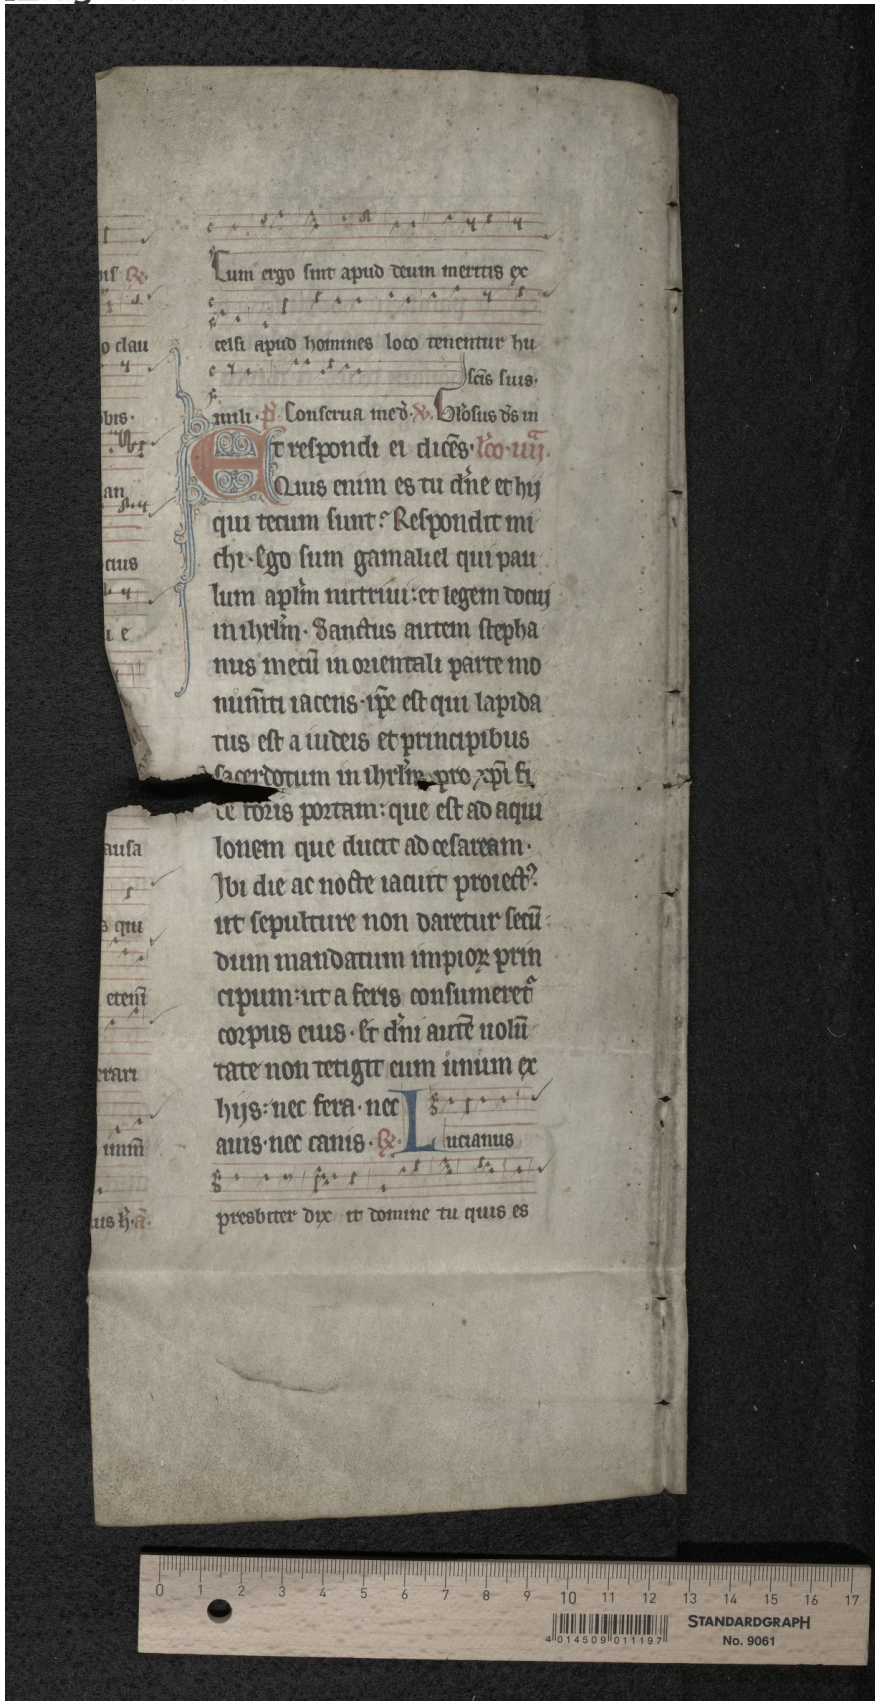 o clau
bis·
an
cius
i e
ausa
s qui
etenī
erari
Cum ergo sint apud deum meritis ex
celsi apud homines loco tenentur hu
scīs suis·
mili· p̄ Conserua me d̄· ꝟ· Gl̓osus d̄s in
Et respondi ei dicēs· lc̄o· iiij.
Quis enim es tu dn̄e et hij
qui tecum sunt? Respondit mi
chi· Ego sum gamaliel qui pau
lum apl̄m nutriui: et legem docui
in ihrl̄m· Sanctus autem stepha
nus mecū in orientali parte mo
num̄ti iacens· ip̄e est qui lapida
tus est a iudeis et principibus
sacerdotum in ihrl̄m pro xp̄i fi
de foris portam: que est ad aqui
lonem que ducit ad cesaream·
Ibi die ac nocte iacuit proiectꝰ.
ut sepulture non daretur secū
dum mandatum impioꝝ prin
cipum: ut a feris consumeret᷑
corpus eius· Et dn̄i autē uolū
tate non tetigit eum unum ex
hijs: nec fera· nec
auis· nec canis· ℟· Lucianus
presbiter dix it domine tu quis es
STANDARDGRAPH
No. 9061
4 014509 011197
0 1 2 3 4 5 6 7 8 9 10 11 12 13 14 15 16 17